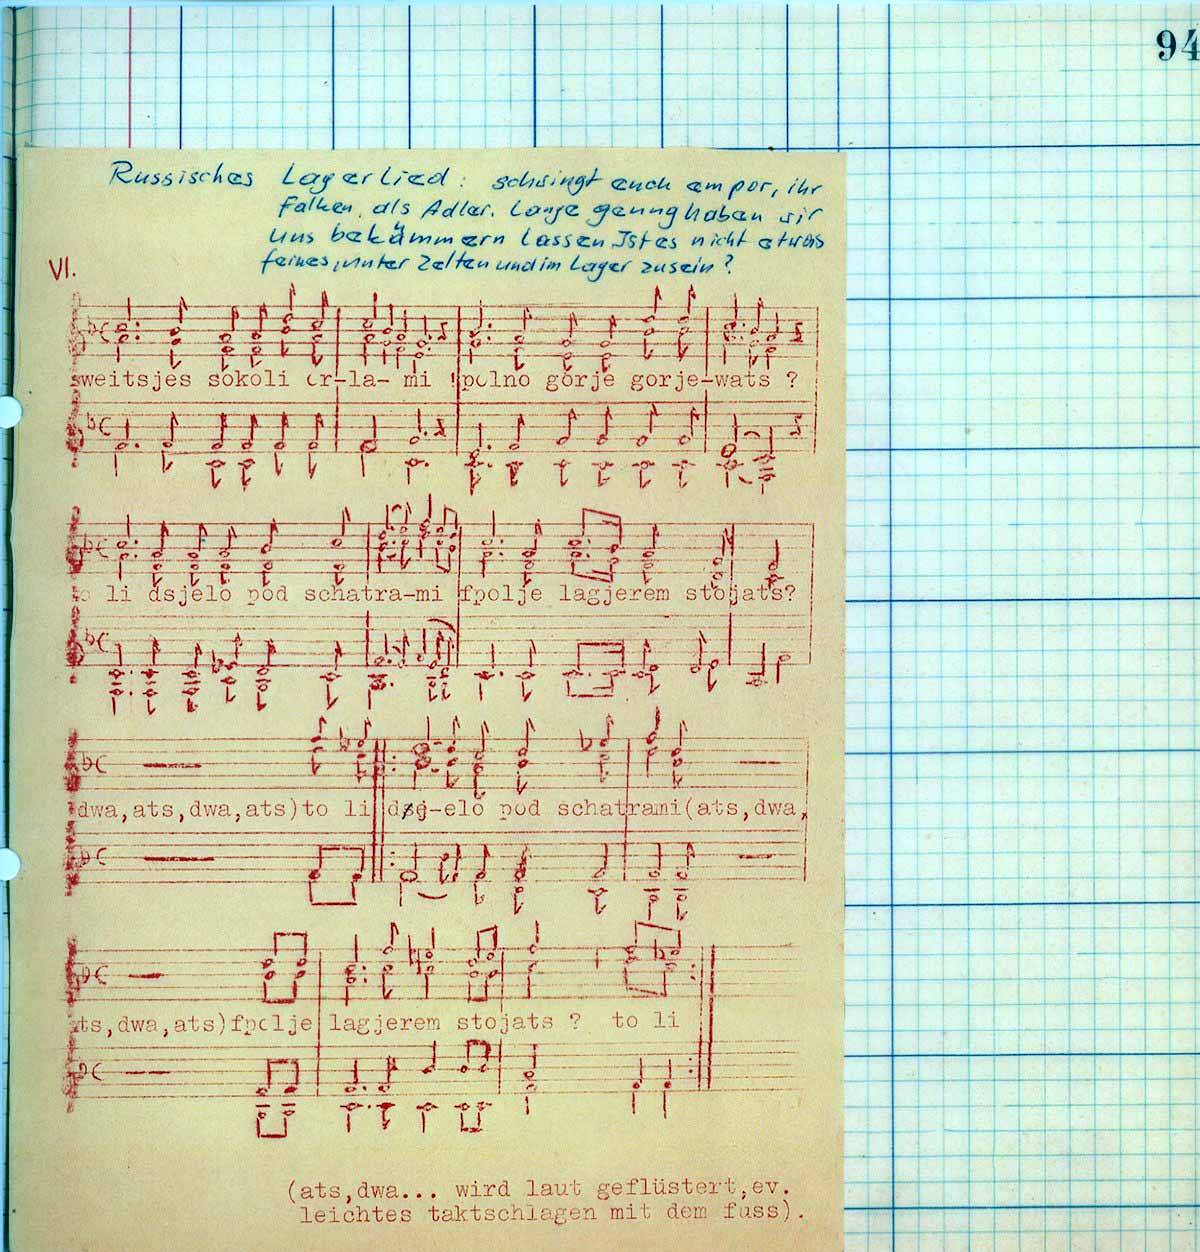 94
Russisches Lagerlied: schwingt euch empor, ihr
Falken, als Adler. Lange genug haben wir
uns bekümmern lassen Ist es nicht etwas
feines, unter Zelten und im Lager zu sein?
VI.
sweitsjes sokoli or-la- mi ! polno gorje gorje-wats ?
o li dsjelo pod schatra-mi fpolje lagjerem stojats?
dwa,ats,dwa,ats)to li dsj-elo pod schatrami(ats,dwa,
ts,dwa,ats)fpolje lagjerem stojats ? to li
(ats,dwa... wird laut geflüstert,ev.
leichtes taktschlagen mit dem fuss).